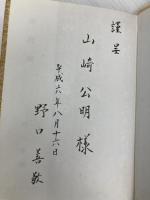 謹呈
山崎公明様
平成六年八月十六日
野口善敬